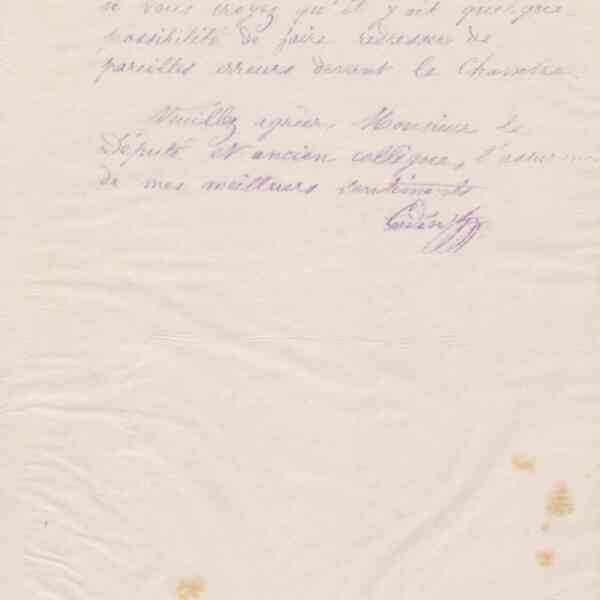 si vous croyez qu'il y ait quelque
possibilité de faire redresser de
pareilles erreurs devant la Chambre.
Veuillez agréer, Monsieur le
Député et ancien collègue, l'assurance
de mes meilleurs sentiments